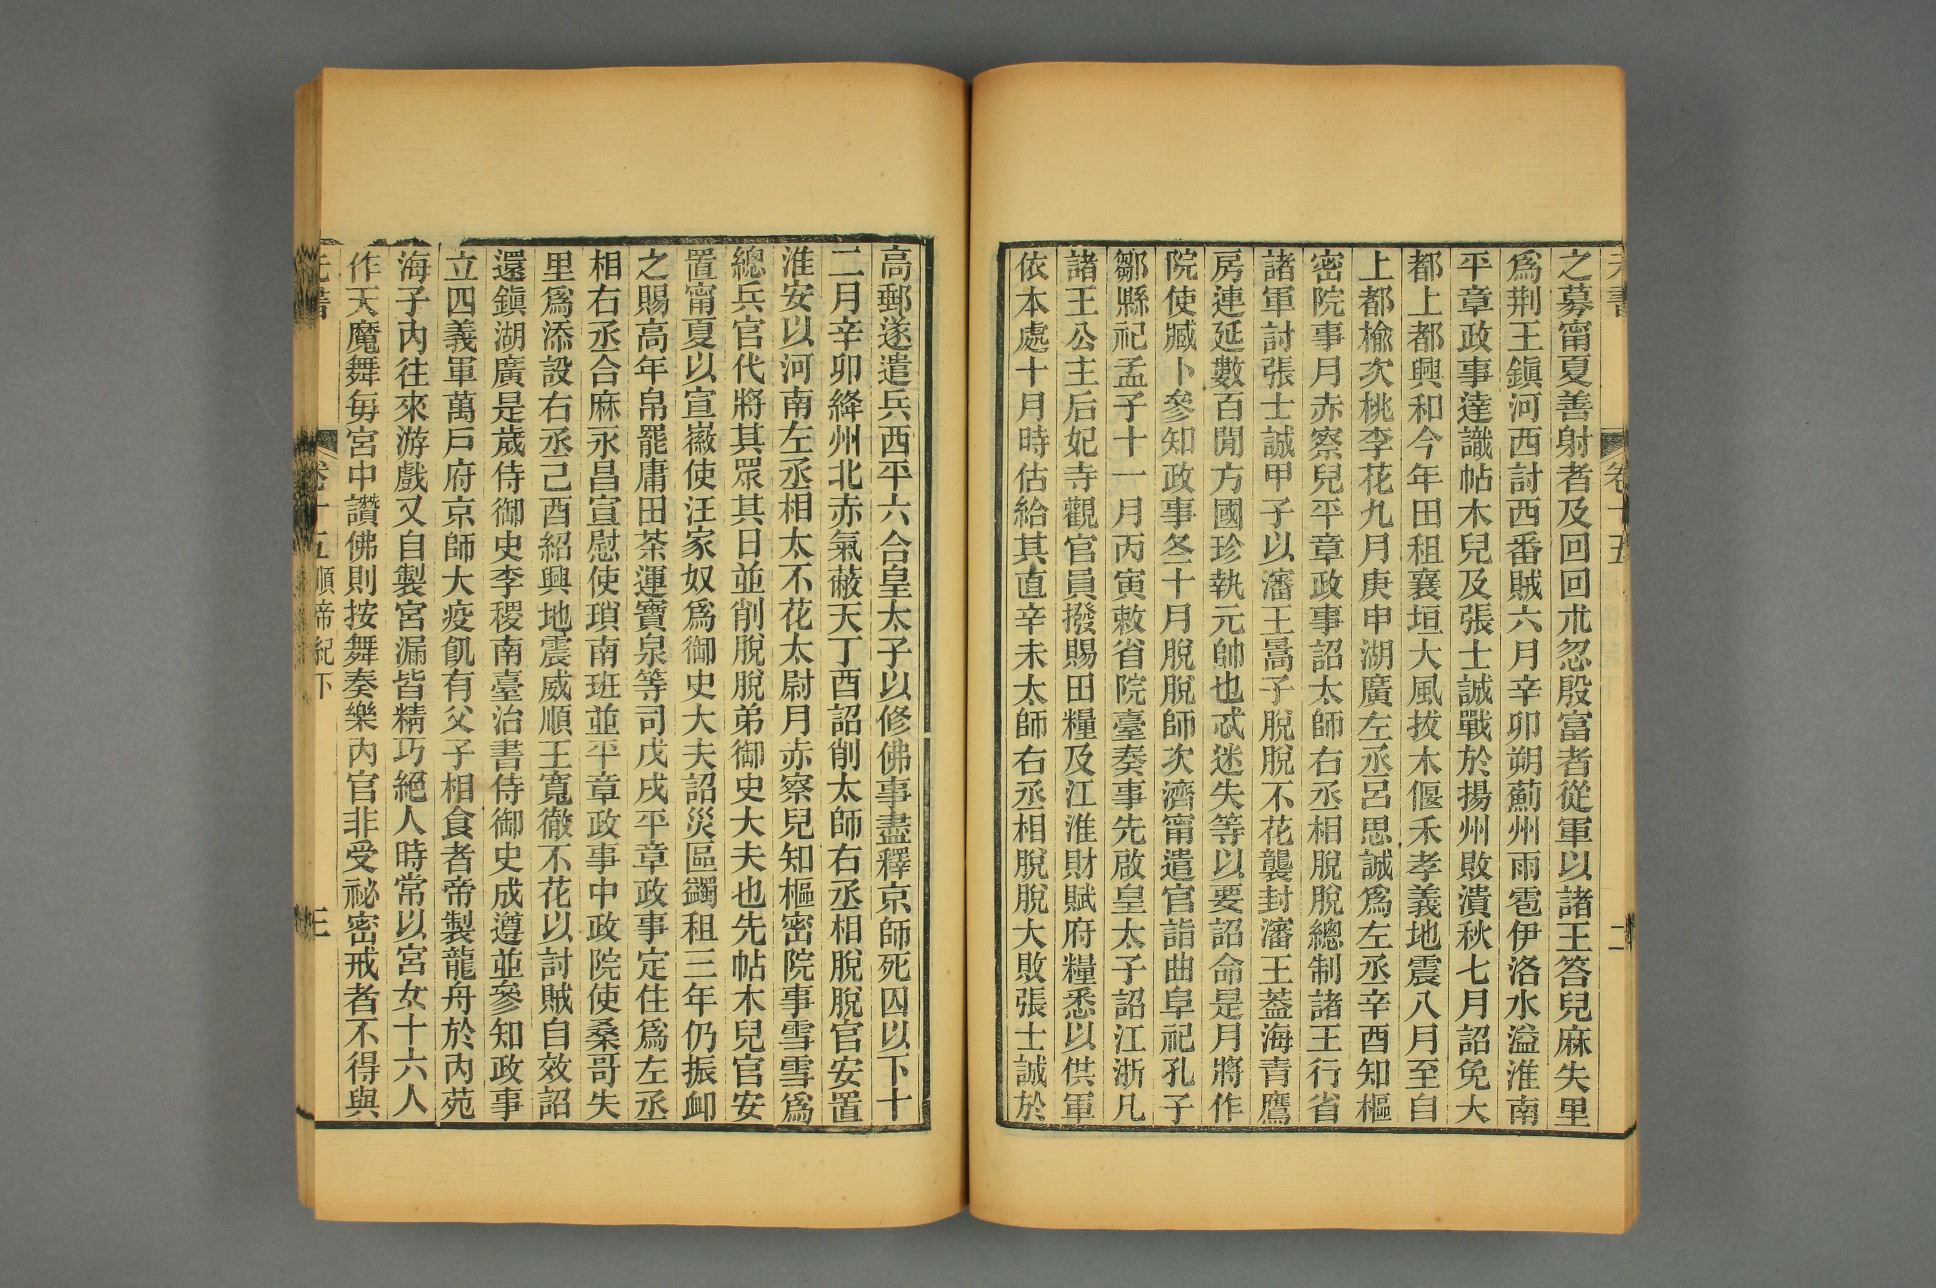 元書
卷十五
二
之募甯夏善射者及回回朮忽殷富者從軍以諸王答兒麻失里
爲荆王鎭河西討西番賊六月辛卯朔薊州雨雹伊洛水溢淮南
平章政事達識帖木兒及張士誠戰於揚州敗潰秋七月詔免大
都上都興和今年田租襄垣大風拔木偃禾孝義地震八月至自
上都楡次桃李花九月庚申湖廣左丞呂思誠爲左丞辛酉知樞
密院事月赤察兒平章政事詔太師右丞相脫脫總制諸王行省
諸軍討張士誠甲子以瀋王暠子脫脫不花襲封瀋王葢海青鷹
房連延數百閒方國珍執元帥也忒迷失等以要詔命是月將作
院使臧卜參知政事冬十月脫脫師次濟甯遣官詣曲阜祀孔子
鄒縣祀孟子十一月丙寅敕省院臺奏事先啟皇太子詔江浙凡
諸王公主后妃寺觀官員撥賜田糧及江淮財賦府糧悉以供軍
依本處十月時估給其直辛未太師右丞相脫脫大敗張士誠於
高郵遂遣兵西平六合皇太子以修佛事盡釋京師死囚以下十
二月辛卯絳州北赤氣蔽天丁酉詔削太師右丞相脫脫官安置
淮安以河南左丞相太不花太尉月赤察兒知樞密院事雪雪爲
總兵官代將其眾其日並削脫脫弟御史大夫也先帖木兒官安
置甯夏以宣徽使汪家奴爲御史大夫詔災區蠲租三年仍振卹
之賜高年帛罷庸田茶運寶泉等司戊戌平章政事定住爲左丞
相右丞合麻永昌宣慰使瑣南班並平章政事中政院使桑哥失
里爲添設右丞己酉紹興地震威順王寬徹不花以討賊自效詔
還鎭湖廣是歲侍御史李稷南臺治書侍御史成遵並參知政事
立四義軍萬戶府京師大疫飢有父子相食者帝製龍舟於內苑
海子內往來游戲又自製宮漏皆精巧絕人時常以宮女十六人
作天魔舞每宮中讚佛則按舞奏樂內官非受祕密戒者不得與
元書
卷十五順帝紀下
三